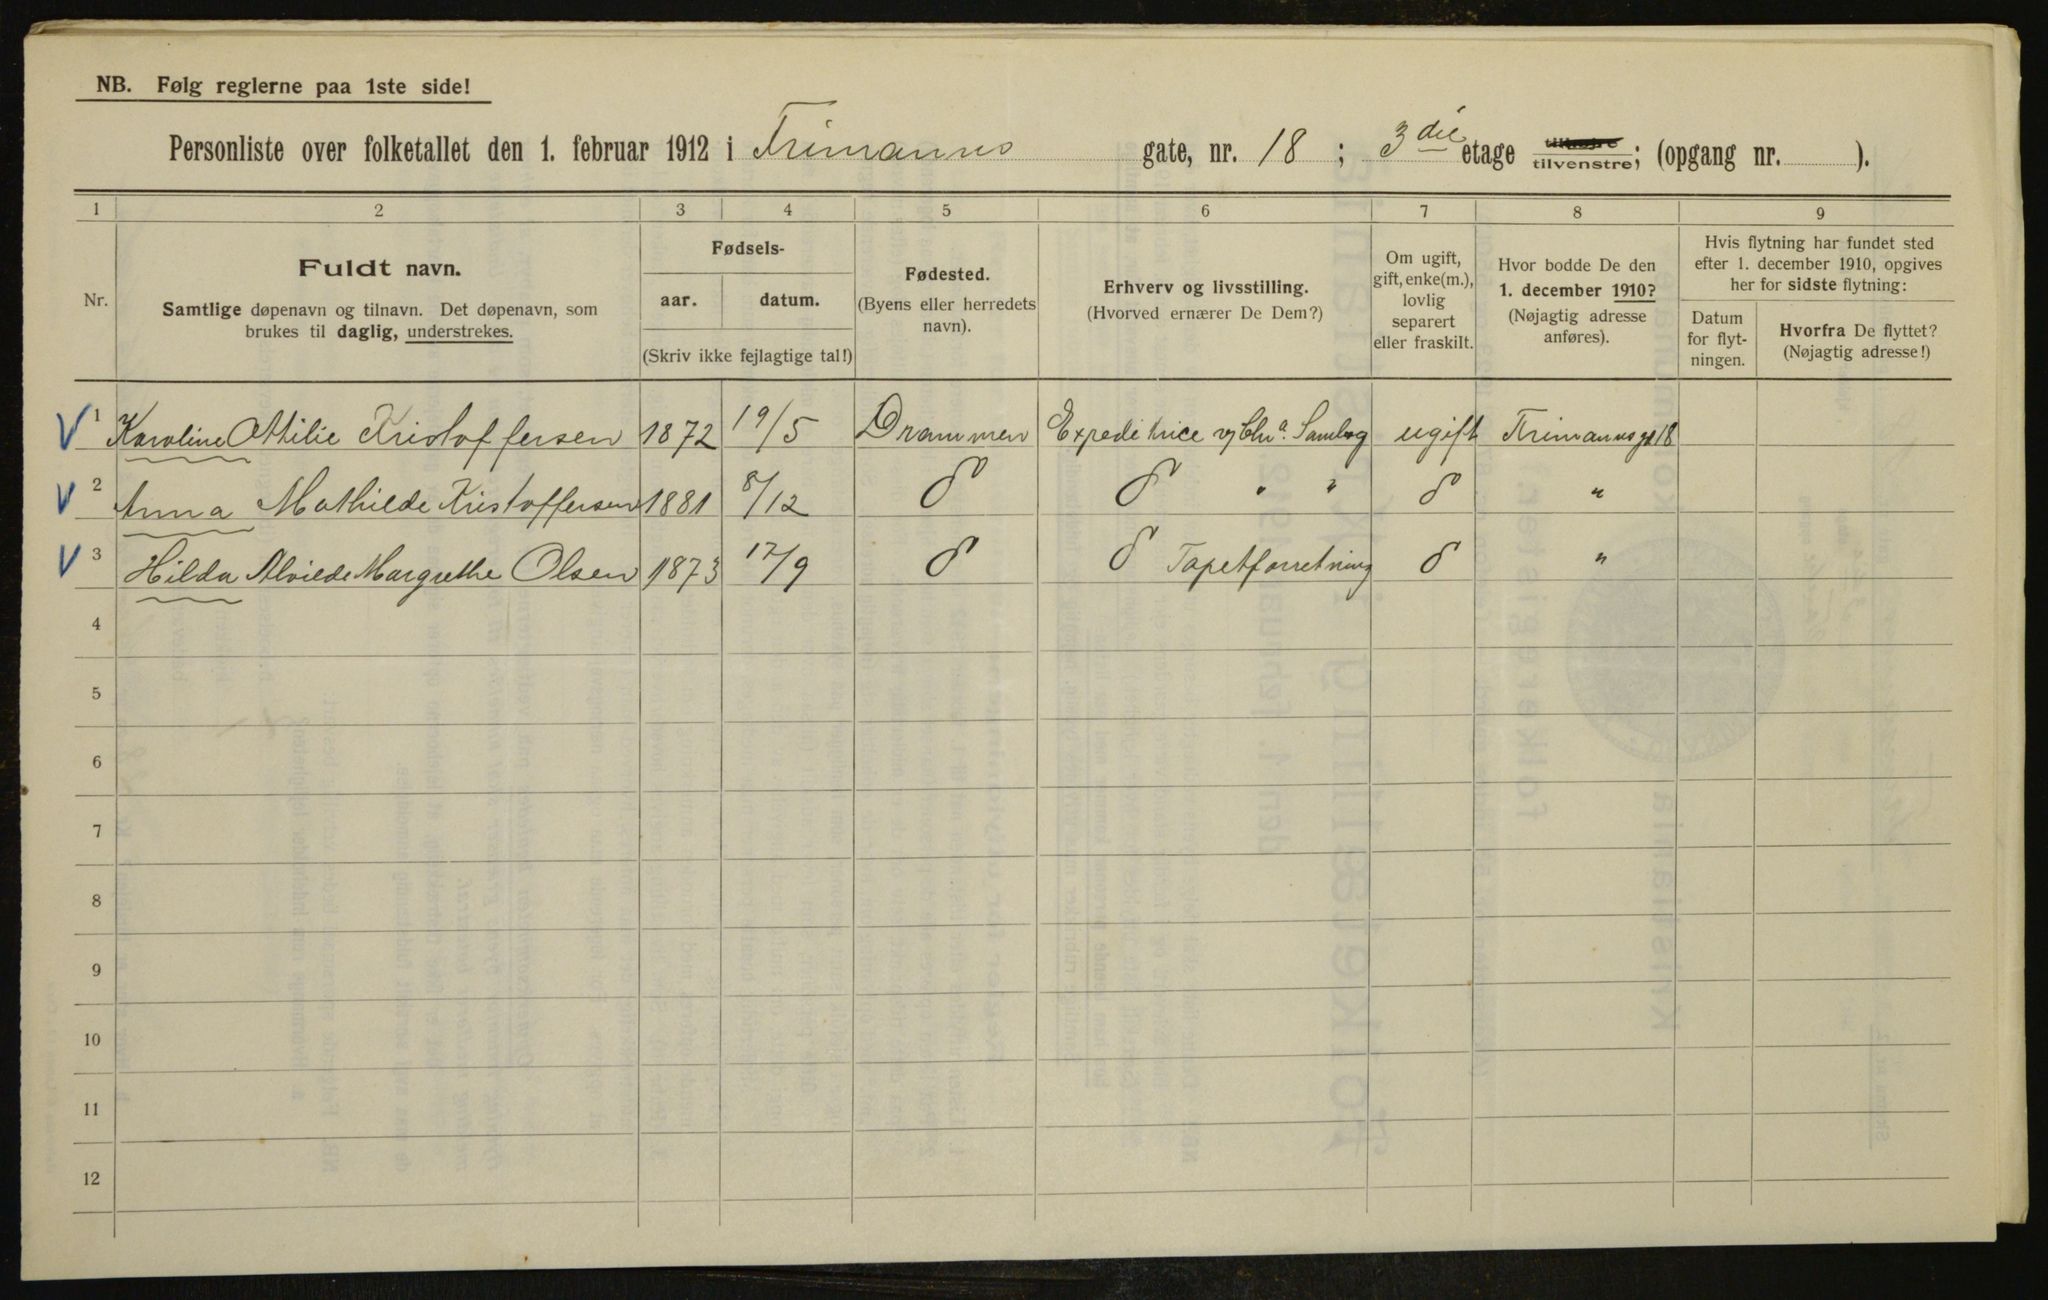 NB. Følg reglerne paa 1ste side!
Personliste over folketallet den 1. februar 1912 i Frimanns gate, nr. 18 ; 3die etage tilhøire tilvenstre; (opgang nr. ).
1 2 3 4 5 6 7 8 9
Nr.
Fuldt navn.
Samtlige døpenavn og tilnavn. Det døpenavn, som
brukes til daglig, understrekes.
Fødsels-
aar. datum.
(Skriv ikke fejlagtige tal!)
Fødested.
(Byens eller herredets
navn).
Erhverv og livsstilling.
(Hvorved ernærer De Dem?)
Om ugift,
gift, enke(m.),
lovlig
separert
eller fraskilt.
Hvor bodde De den
1. december 1910?
(Nøjagtig adresse
anføres).
Hvis flytning har fundet sted
efter 1. december 1910, opgives
her for sidste flytning:
Datum
for flyt-
ningen.
Hvorfra De flyttet?
(Nøjagtig adresse!)
V 1 Karoline Ottilie Kristoffersen 1872 19/5 Drammen Expeditrice ugift Frimannsgt 18
V 2 Anna Mathilde Kristoffersen 1881 8/12 do do " " do "
V 3 Hilda Alvilde Margrethe Olsen 1873 17/9 do do Tapetforretning do "
4
5
6
7
8
9
10
11
12